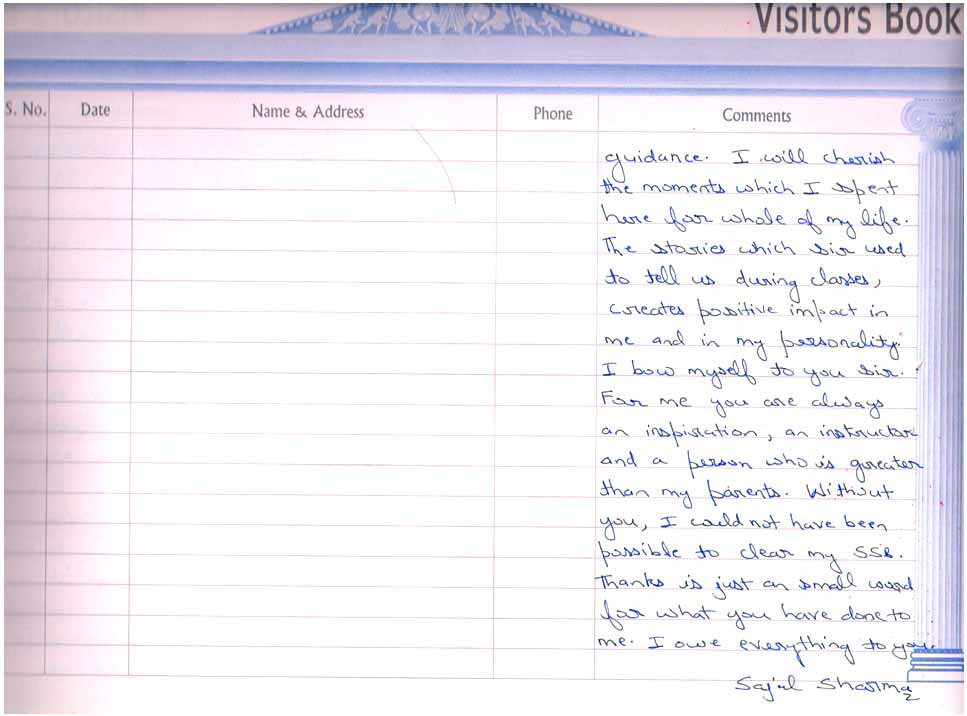 Visitors Book
S. No. Date Name & Address Phone Comments
guidance. I will cherish
the moments which I spent
here for whole of my life.
The stories which sir used
to tell us during classes,
creates positive impact in
me and in my personality.
I bow myself to you sir.
For me you are always
an inspiration, an instructor
and a person who is greater
than my parents. Without
you, I could not have been
possible to clear my SSB.
Thanks is just an small word
for what you have done to
me. I owe everything to you.
Sajal Sharma